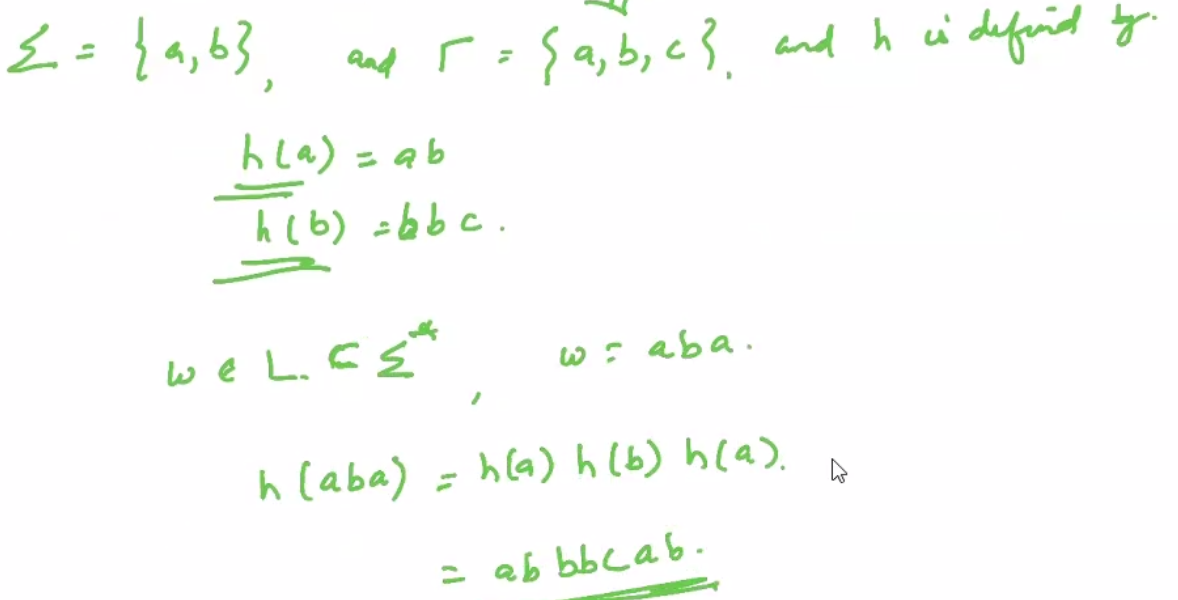 Σ = {a, b}, and Γ = {a, b, c}, and h is defined by.
h(a) = ab
h(b) = bbc.
w ∈ L. ⊆ Σ*, w = aba.
h(aba) = h(a) h(b) h(a).
= ab bbc ab.